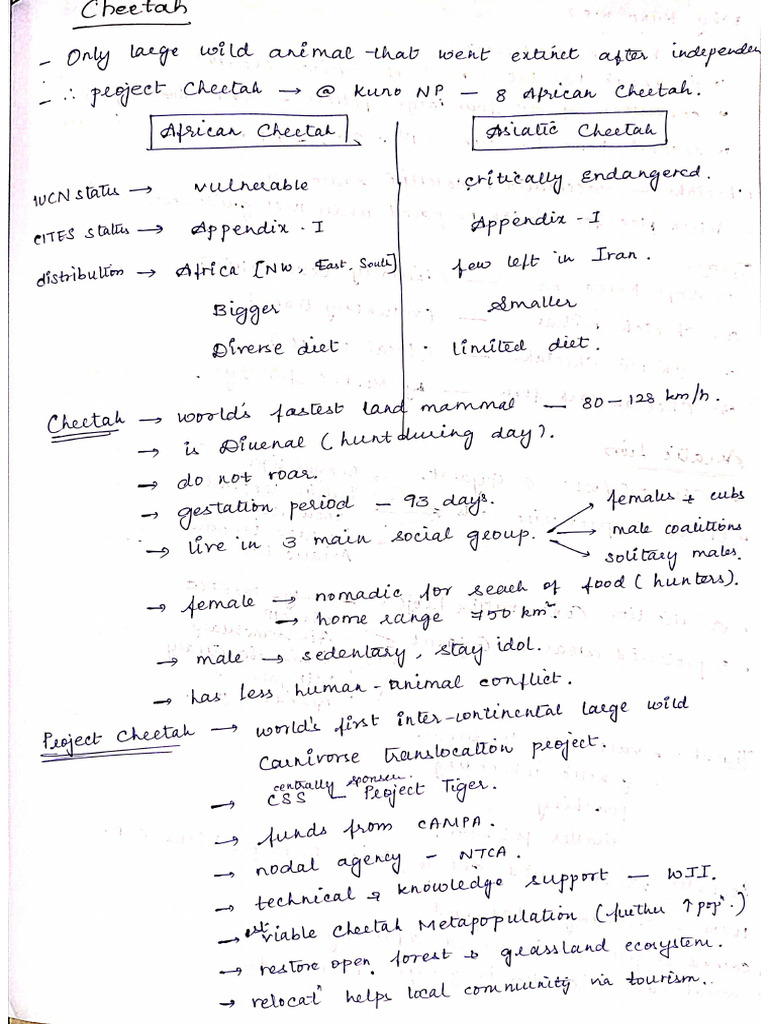 Cheetah
- Only large wild animal that went extinct after independen
- ∴ project Cheetah → @ Kuno NP - 8 African Cheetah.
African Cheetah
Asiatic Cheetah
IUCN status → Vulnerable
Critically Endangered.
CITES status → Appendix - I
Appendix - I
distribution → Africa [NW, East, South]
few left in Iran.
Bigger
Smaller
Diverse diet
limited diet.
Cheetah → woold's fastest land mammal - 80-128 km/h.
→ is Diuenal (hunt during day).
→ do not roar.
→ gestation period - 93 days.
→ live in 3 main social group.
→ females + cubs
→ male coalitions
→ solitary males.
→ female → nomadic for seach of food (hunters).
→ home range 750 km².
→ male → sedentary, stay idol.
→ has less human-animal conflict.
Project Cheetah → world's first inter-continental large wild
Carnivorse translocation project.
centrally sponser.
→ CSS - Project Tiger.
→ funds from CAMPA.
→ nodal agency - NTCA.
→ technical & knowledge support - WII.
→ est. viable Cheetah Metapopulation (further ↑ popⁿ.)
→ restore open forest & grassland ecosystem.
→ relocatⁿ helps local community via tourism.